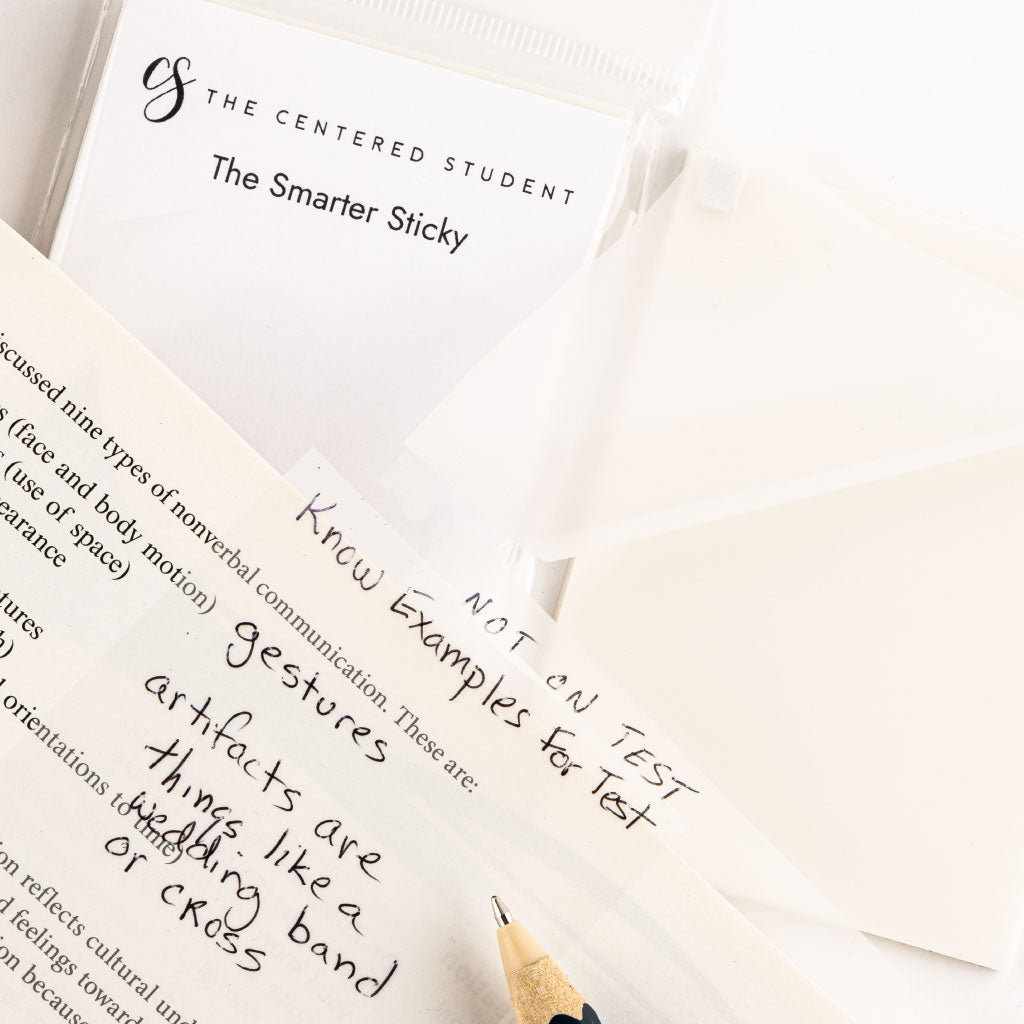 cs THE CENTERED STUDENT
The Smarter Sticky
discussed nine types of nonverbal communication. These are:
(face and body motion)
(use of space)
orientations to time)
reflects cultural
feelings
because
Know Examples For Test
NOT ON TEST
gestures
artifacts are
things like a
wedding band
or cross